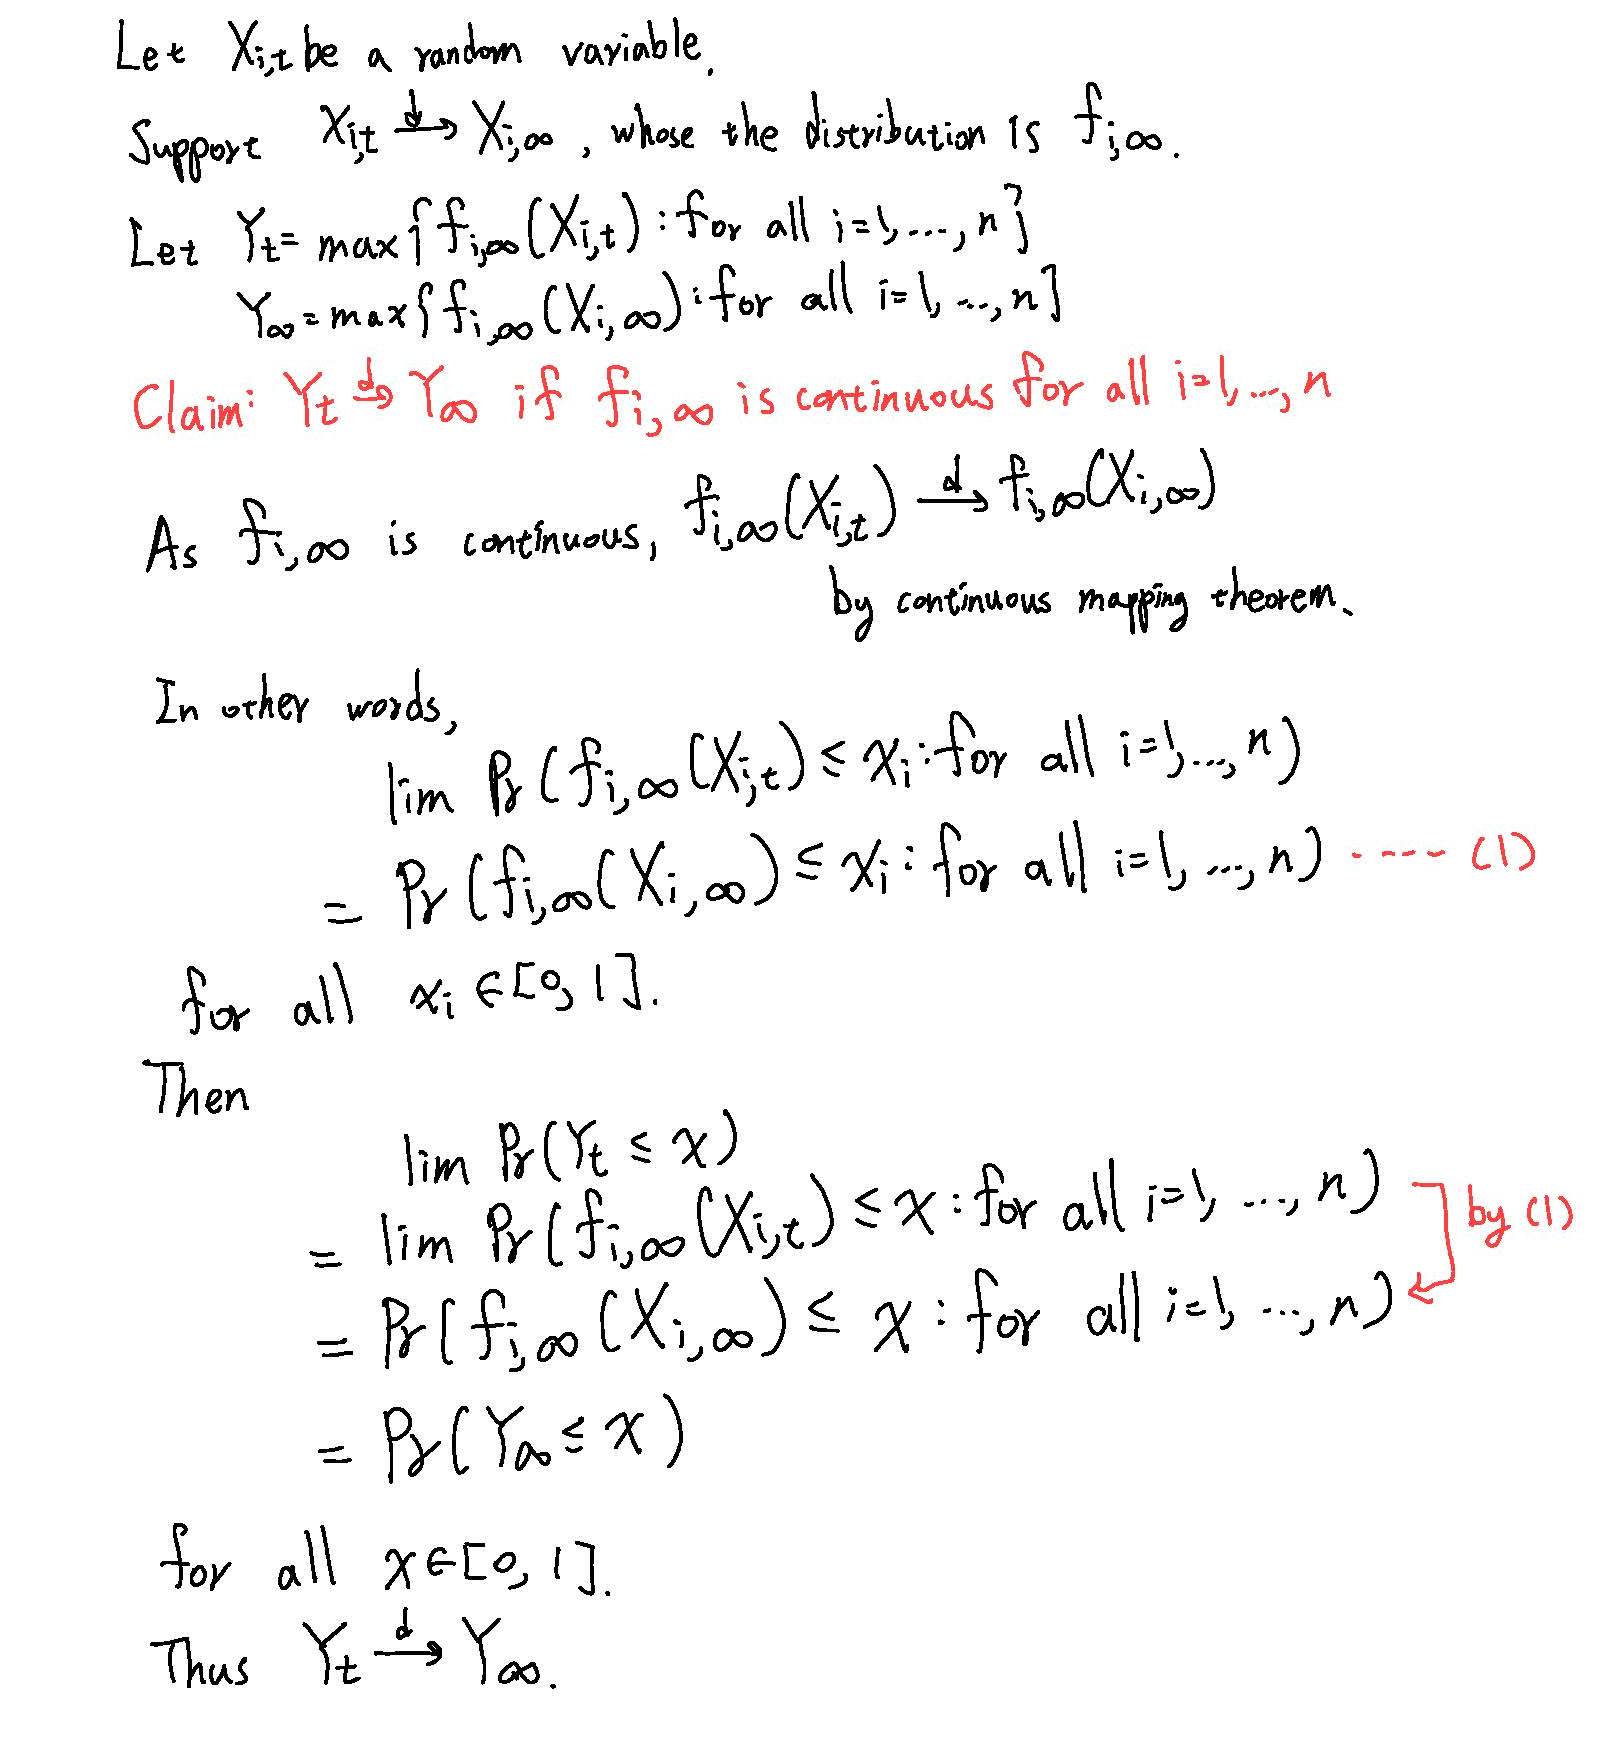 Let X_{i,t} be a random variable.
Support X_{i,t} \xrightarrow{d} X_{i,∞}, whose the distribution is f_{i,∞}.
Let Y_t = max{f_{i,∞}(X_{i,t}) : for all i=1, ..., n}
Y_∞ = max{f_{i,∞}(X_{i,∞}) : for all i=1, ..., n}
Claim: Y_t \xrightarrow{d} Y_∞ if f_{i,∞} is continuous for all i=1, ..., n
As f_{i,∞} is continuous, f_{i,∞}(X_{i,t}) \xrightarrow{d} f_{i,∞}(X_{i,∞})
by continuous mapping theorem.
In other words,
lim Pr(f_{i,∞}(X_{i,t}) ≤ x_i : for all i=1, ..., n)
= Pr(f_{i,∞}(X_{i,∞}) ≤ x_i : for all i=1, ..., n) ---- (1)
for all x_i ∈ [0, 1].
Then
lim Pr(Y_t ≤ x)
= lim Pr(f_{i,∞}(X_{i,t}) ≤ x : for all i=1, ..., n)
by (1)
= Pr(f_{i,∞}(X_{i,∞}) ≤ x : for all i=1, ..., n)
= Pr(Y_∞ ≤ x)
for all x ∈ [0, 1].
Thus Y_t \xrightarrow{d} Y_∞.